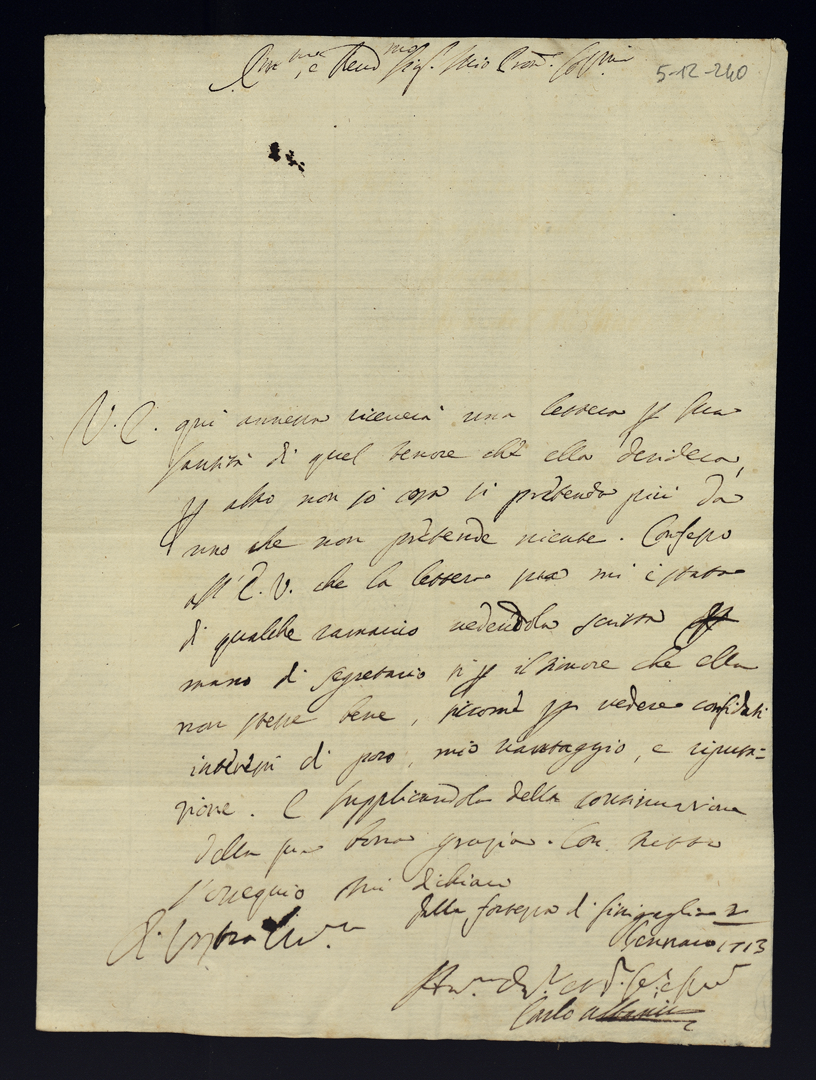 e Rend.mo Sig.r mio Pron.
5-12-240
V. E. qui annessa riceverà una lettera p sua
santità di quel tenore che ella desidera,
p altro non so cosa si pretenda più da
uno che non pretende niente. Confesso
all'E. V. che la lettera sua mi è stata
di qualche ramarico vedendola scritta p
mano di segretario si p il timore che ella
non stesse bene, sicome p vedere confidati
interessi di poco mio vantaggio, e riputa=
zione. E supplicandola della continuazione
della sua bona grazia. Con tutto
l'ossequio mi dichiaro
Dalla fortezza di Sinigaglia 2
Gennaro 1713
Carlo Albani